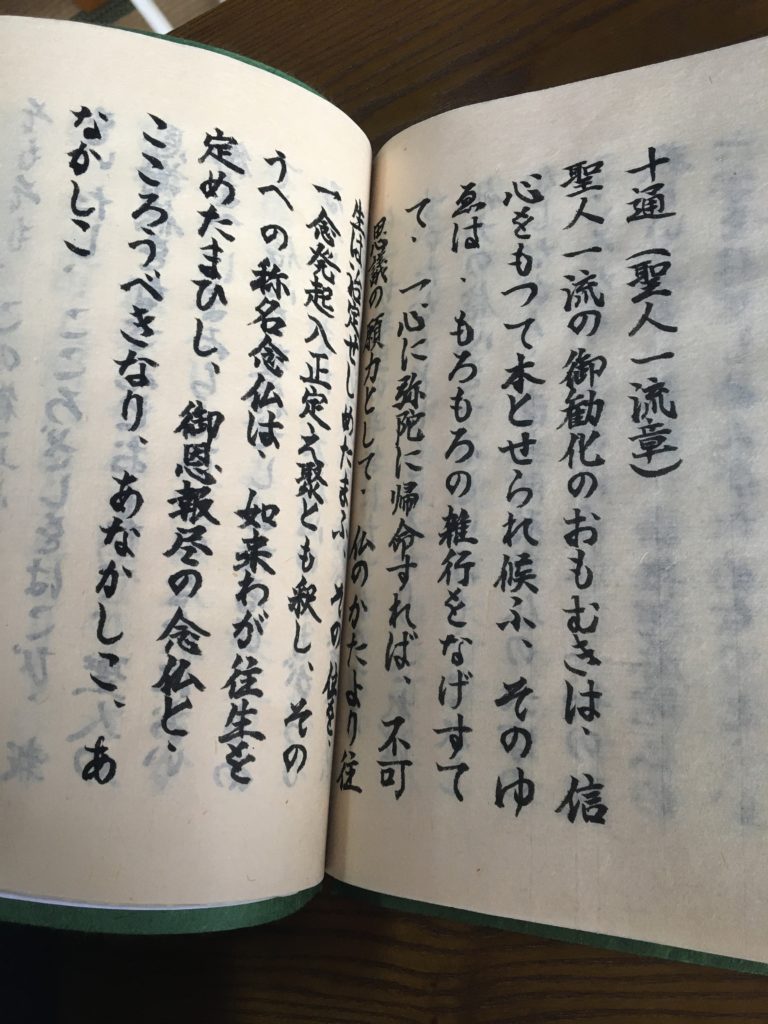 十通（聖人一流章）
聖人一流の御勧化のおもむきは、信
心をもつて本とせられ候ふ、そのゆ
ゑは、もろもろの雑行をなげすて
て、一心に弥陀に帰命すれば、不可
思議の願力として、仏のかたより往
生は治定せしめたまふ、その位を、
一念発起入正定之聚とも釈し、その
うへの称名念仏は、如来わが往生を
定めたまひし、御恩報尽の念仏と、
こころうべきなり、あなかしこ、あ
なかしこ